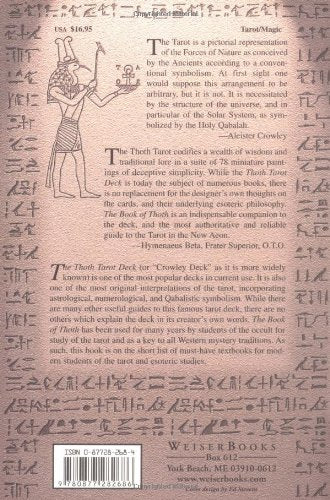 USA $16.95 Tarot/Magic
The Tarot is a pictorial representation
of the Forces of Nature as conceived
by the Ancients according to a conven-
tional symbolism. At first sight one
would suppose this arrangement to be
arbitrary, but it is not. It is necessitated
by the structure of the universe, and in
particular of the Solar System, as sym-
bolized by the Holy Qabalah.
—Aleister Crowley
The Thoth Tarot codifies a wealth of wisdom and
traditional lore in a suite of 78 miniature paint-
ings of deceptive simplicity. While the Thoth Tarot
Deck is today the subject of numerous books, there
is no replacement for the designer's own thoughts on
the cards, and their underlying esoteric philosophy.
The Book of Thoth is an indispensable companion to
the deck, and the most authoritative and reliable
guide to the Tarot in the New Aeon.
—Hymenaeus Beta, Frater Superior, O.T.O.
The Thoth Tarot Deck (or "Crowley Deck" as it is more widely
known) is one of the most popular decks in current use. It is also
one of the most original interpretations of the tarot, incorporating
astrological, numerological, and Qabalistic symbolism. While there
are many other useful guides to this famous tarot deck, there are no
others which explain the deck in its creator's own words. The Book
of Thoth has been used for many years by students of the occult for
study of the tarot and as a key to all Western mystery traditions. As
such, this book is on the short list of must-have textbooks for mod-
ern students of the tarot and esoteric studies.
ISBN 0-87728-268-4
9 780877 282686
WEISERBOOKS
Box 612
York Beach, ME 03910-0612
www.weiserbooks.com
Cover design by Ed Stevens